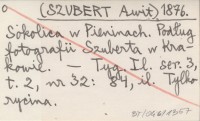 (SZUBERT Awit), 1876.
Sokolica w Pieninach. Podług
fotografii Szuberta w Kra-
kowie. — Tyg. Il. ser. 3,
t. 2, nr 32: 84, il. Tylko
rycina.